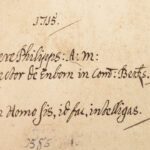 1713.
ere Philipps: A: m:
ector de Enborn in Com: Berks.
Homo sis, id fac, intelligas.